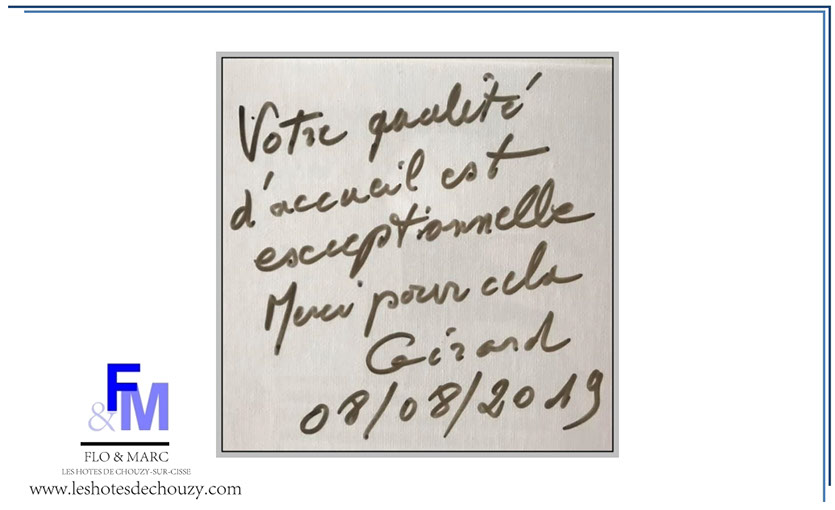 Votre qualité
d'accueil est
exceptionnelle
Merci pour cela
Gérard
08/08/2019
F
&M
FLO & MARC
LES HOTES DE CHOUZY-SUR-CISSE
www.leshotesdechouzy.com